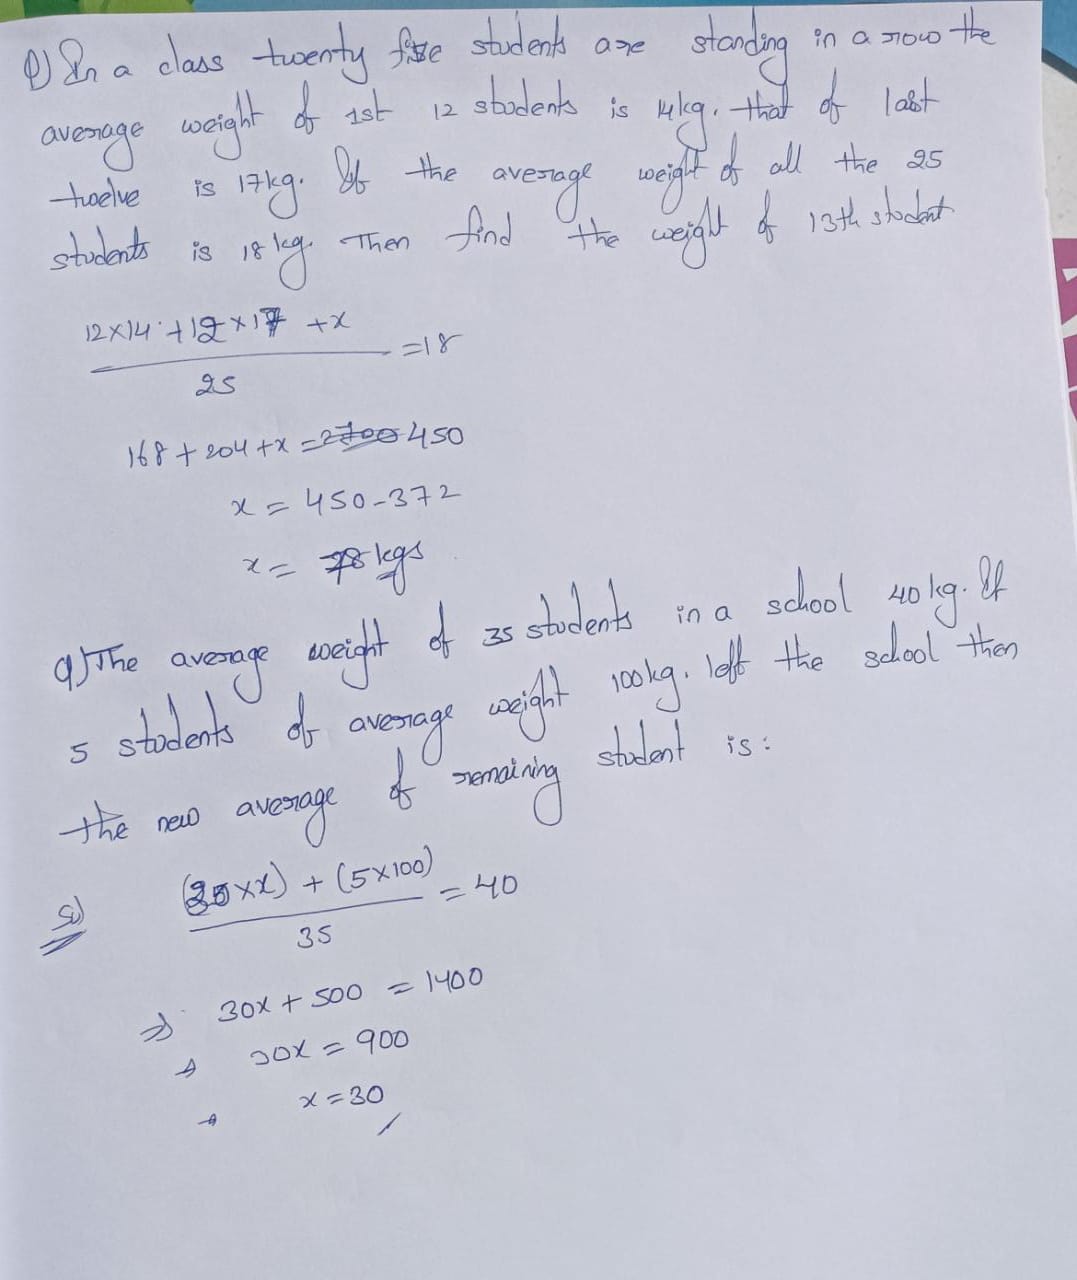 Q) In a class twenty five students are standing in a row the
average weight of 1st 12 students is 14kg. that of last
twelve is 17kg. If the average weight of all the 25
students is 18 kg. Then find the weight of 13th student
12×14 + 12×17 + x
= 18
25
168 + 204 + x = 2700 450
x = 450 - 372
x = 78 kgs
Q) The average weight of 35 students in a school 40 kg. If
5 students of average weight 100kg. left the school then
the new average of remaining student is:
S)
(30×x) + (5×100)
= 40
35
⇒ 30x + 500 = 1400
⇒ 30x = 900
⇒ x = 30